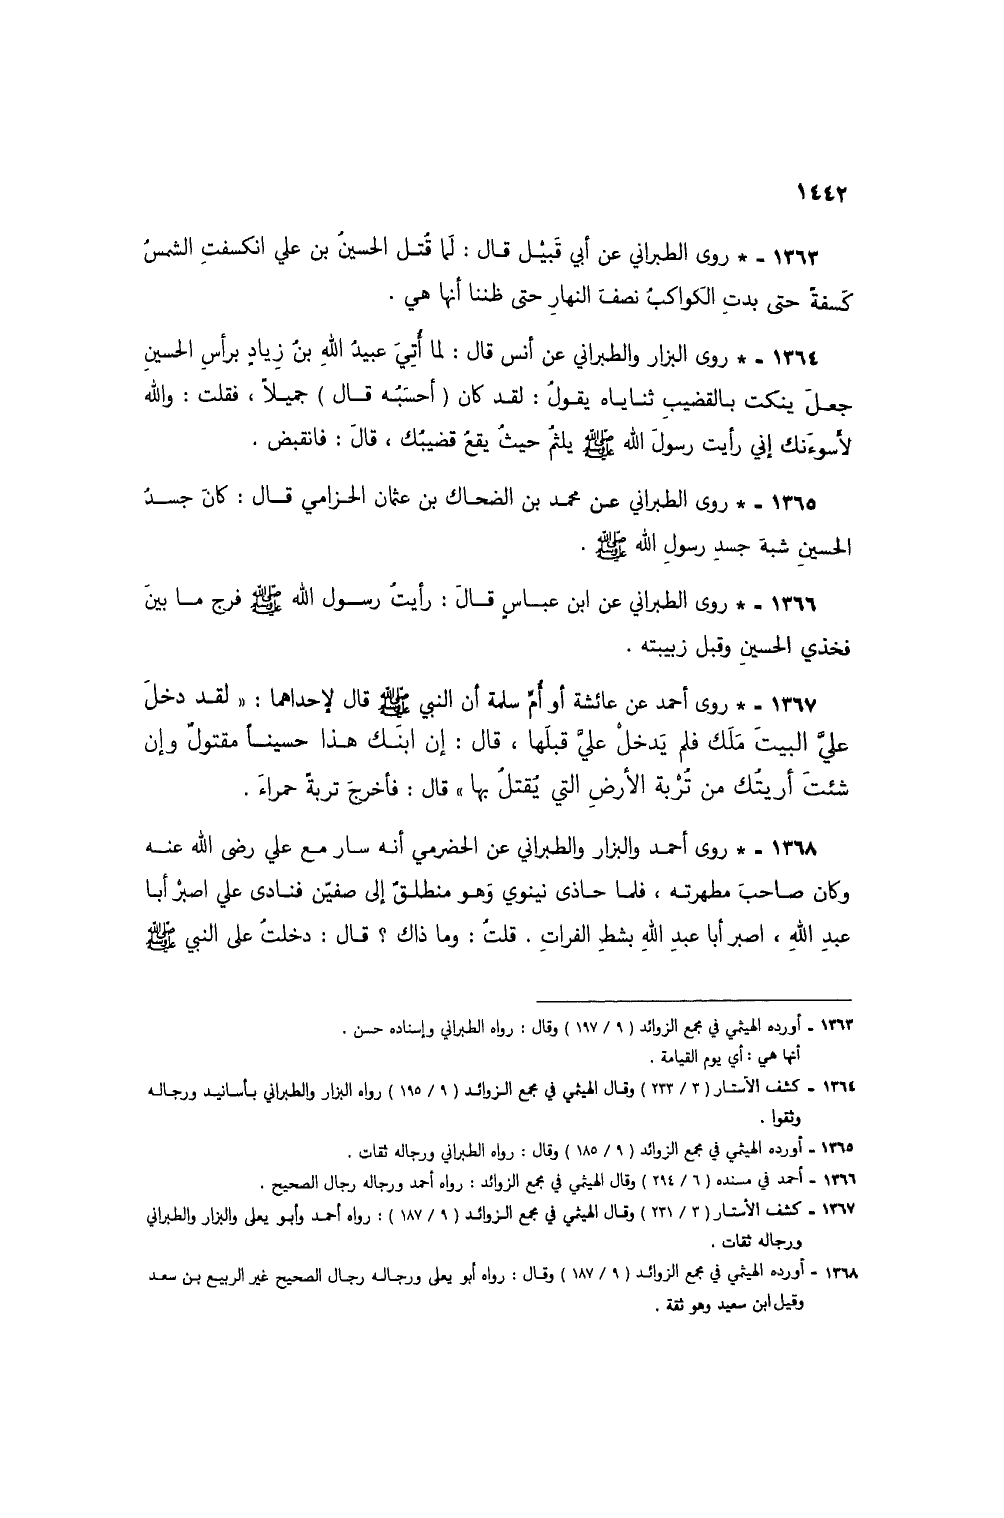 ١٤٤٢
١٣٦٣ - * روى الطبراني عن أبي قَبِيْل قال : لَما قُتل الحسينُ بن علي انكسفتِ الشمسُ
كَسفةً حتى بدتِ الكواكبُ نصفَ النهارِ حتى ظننا أنها هي .
١٣٦٤ - * روى البزار والطبراني عن أنس قال : لما أُتِيَ عبيدُ اللهِ بنُ زيادٍ برأسِ الحسينِ
جعلَ ينكت بالقضيبِ ثناياه يقولُ : لقد كان ( أحسَبُه قال ) جميلاً ، فقلت : والله
لأسوءَنك إني رأيت رسولَ الله ﷺ يلثمُ حيثُ يقعُ قضيبُك ، قالَ : فانقبض .
١٣٦٥ - * روى الطبراني عن محمد بن الضحاك بن عثمان الحزامي قال : كانَ جسدُ
الحسينِ شبهَ جسدِ رسولِ الله ﷺ .
١٣٦٦ - * روى الطبراني عن ابن عباسٍ قالَ : رأيتُ رسول الله ﷺ فرج ما بينَ
فخذي الحسينِ وقبل زبيبته .
١٣٦٧ - * روى أحمد عن عائشة أو أُمِّ سلمة أن النبي ﷺ قال لإحداهما : « لقد دخلَ
عليَّ البيتَ مَلَك فلم يَدخلْ عليَّ قبلَها ، قال : إن ابنَك هذا حسيناً مقتولٌ وإن
شئتَ أريتُك من تُرْبة الأرضِ التي يُقتلُ بها » قال : فأخرجَ تربةً حمراءَ .
١٣٦٨ - * روى أحمد والبزار والطبراني عن الحضرمي أنه سار مع علي رضى الله عنه
وكان صاحبَ مطهرته ، فلما حاذى نينوي وَهو منطلقٌ إلى صفيّن فنادى علي اصبرْ أبا
عبدِ اللهِ ، اصبر أبا عبدِ اللهِ بشطِ الفراتِ . قلتُ : وما ذاك ؟ قال : دخلتُ على النبي ﷺ
١٣٦٣ - أورده الهيثمي في مجمع الزوائد ( ٩ / ١٩٧ ) وقال : رواه الطبراني وإسناده حسن .
أنها هي : أي يوم القيامة .
١٣٦٤ - كشف الآستار ( ٣ / ٢٣٣ ) وقال الهيثمي في مجمع الزوائد ( ٩ / ١٩٥ ) رواه البزار والطبراني بأسانيد ورجاله
وثقوا .
١٣٦٥ - أورده الهيثمي في مجمع الزوائد ( ٩ / ١٨٥ ) وقال : رواه الطبراني ورجاله ثقات .
١٣٦٦ - أحمد في مسنده ( ٦ / ٢٩٤ ) وقال الهيثمي في مجمع الزوائد : رواه أحمد ورجاله رجال الصحيح .
١٣٦٧ - كشف الأستار ( ٣ / ٢٣١ ) وقال الهيثمي في مجمع الزوائد ( ٩ / ١٨٧ ) : رواه أحمد وأبو يعلى والبزار والطبراني
ورجاله ثقات .
١٣٦٨ - أورده الهيثمي في مجمع الزوائد ( ٩ / ١٨٧ ) وقال : رواه أبو يعلى ورجاله رجال الصحيح غير الربيع بن سعد
وقيل ابن سعيد وهو ثقة .